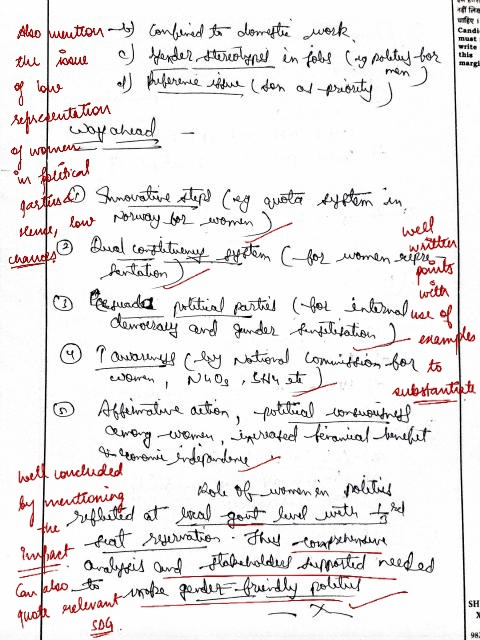 b) Confined to domestic work.
c) Gender stereotypes in jobs (eg politics for men)
d) Preference issue (son as priority)
Way ahead —
① Innovative steps (eg quota system in
Norway for women)
② Dual constituency system (for women repre-
sentation)
③ Persuade political parties (for internal
democracy and gender sensitisation)
④ ↑ awareness (by National Commission for
women, NGOs, SHG etc)
⑤ Affirmative action, political consciousness
among women, increased financial benefit
economic independence
Role of women in politics
reflected at local govt level with 1/3rd
seat reservation. Thus comprehensive
analysis and stakeholders supported needed
to make gender-friendly politics
— X —
Also mention
the issue
of low
representation
of women
in political
parties &
hence, low
chances
well
written
points
with
use of
examples
to
substantiate
well concluded
by mentioning
the
impact
Can also
quote relevant
SDG
नहीं लिख
चाहिए।
Candi
must
write
this
margi
SH
X
982